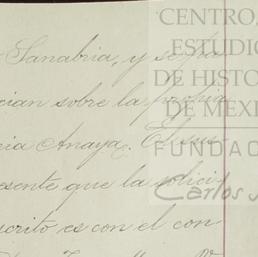 Sanabria, y se ha
cian sobre la
ria Anaya. El sus
esente que la solici
scrito es con el con
CENTRO
ESTUDIO
DE HISTO
DE MÉXI
FUNDAC
Carlos